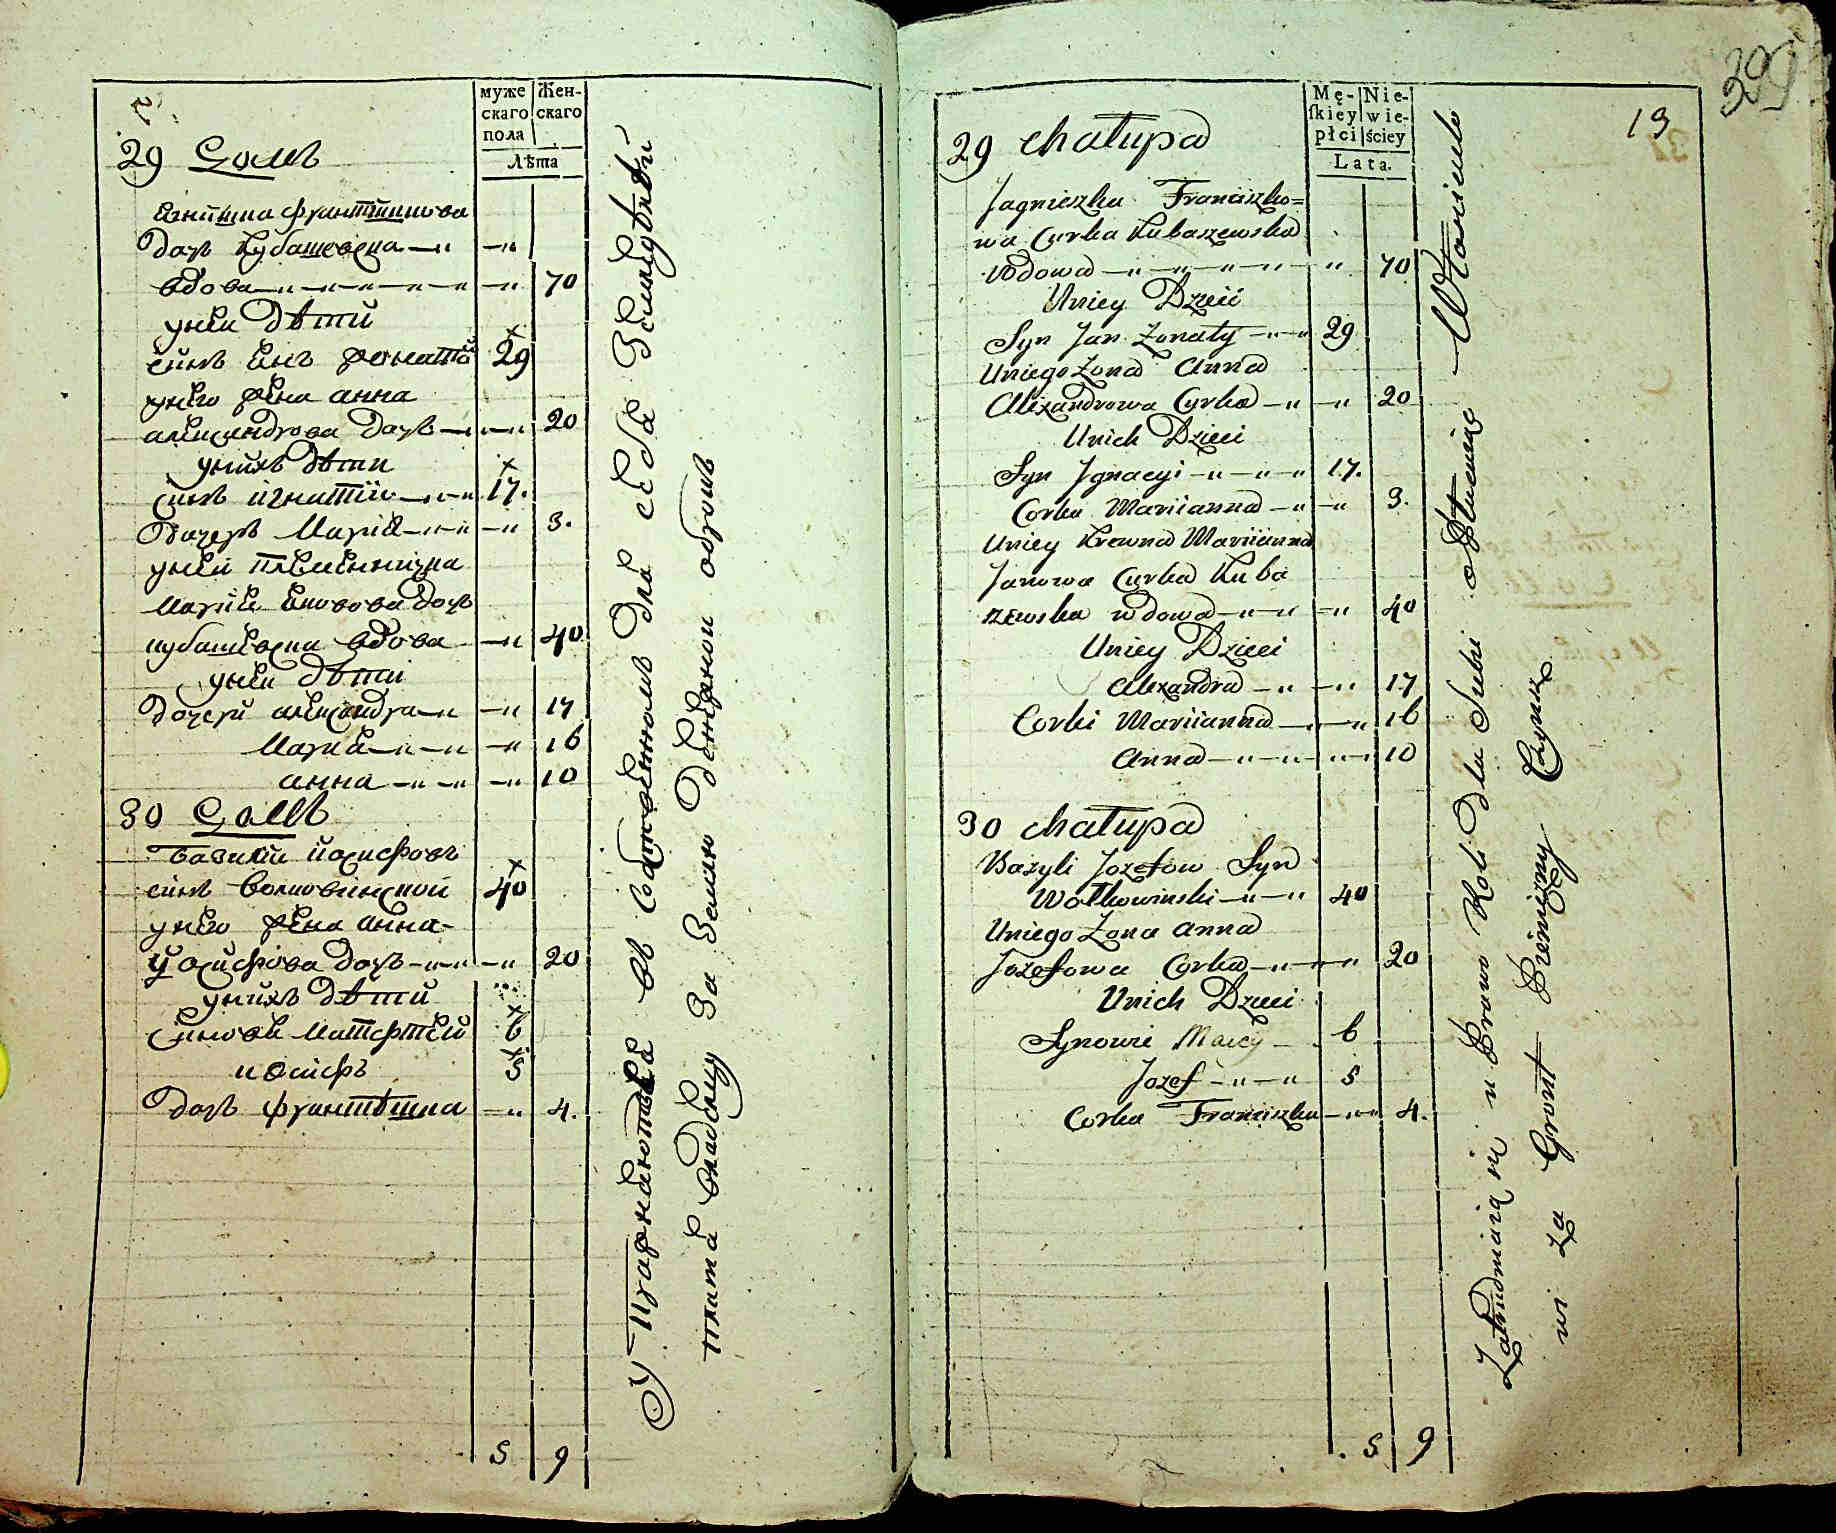 муже
скаго
пола
Жен-
скаго
Лѣта
29 Домъ
Ягнишка Францишкова
дочь Кубашевска —"— —"
вдова —"—"—"— —" 70
у ней дѣти
сынъ Янъ женатой 29
у него жена анна
александрова дочь —"— —" 20
у нихъ дѣти
сынъ игнатiи —"— 17.
дочерь Марiя —"— —" 3.
у ней племенница
Марiя Янова дочь
кубашевска вдова —" 40
у ней дѣти
дочери александра —" —" 17
Марiя —"—" —" 16
анна —"—" —" 10
30 Домъ
Базили иосифовъ
сынъ Волковинской 40
у него жена анна
иосифова дочь —"— —" 20
у нихъ дѣти
сыновя Матфѣй 6
иосифъ 5
дочь францѣшка —" 4.
5 9
Упражняются въ собственномъ для себя
платя владелцу за землю денежной оброкъ
399
13
Mę-
skiey
płci
Nie-
wie-
ściey
Lata.
29 chałupa
Jagnieszka Franciszko=
wa Curka Kubaszewska
Wdowa —"—"—"—" " 70
Uniey Dzieci
Syn Jan Żonaty —"—" 29
Uniego Żona Anna
Alexandrowa Curka —" —" 20
Unich Dzieci
Syn Jgnacyi —"—"—" 17.
Corka Mariianna —" —" 3.
Uniey Krewna Mariianna
Janowa Curka Kuba
szewska wdowa —"—" —" 40
Uniey Dzieci
Alexandra —" —" 17
Corki Mariianna —" —" 16
Anna —"—" —" 10
30 chałupa
Bazyli Jozefow Syn
Wołkowinski —"—" 40
Uniego Żona Anna
Jozefowa Corka —"—" 20
Unich Dzieci
Synowie Maicy — 6
Jozef —"—" 5
Corka Franciszka —"" 4.
5 9
Zatrudniaią się u Prawo Roli dla Siebie opłacaiąc Właścicielo
wi za Gront Pieniężny Czynsz